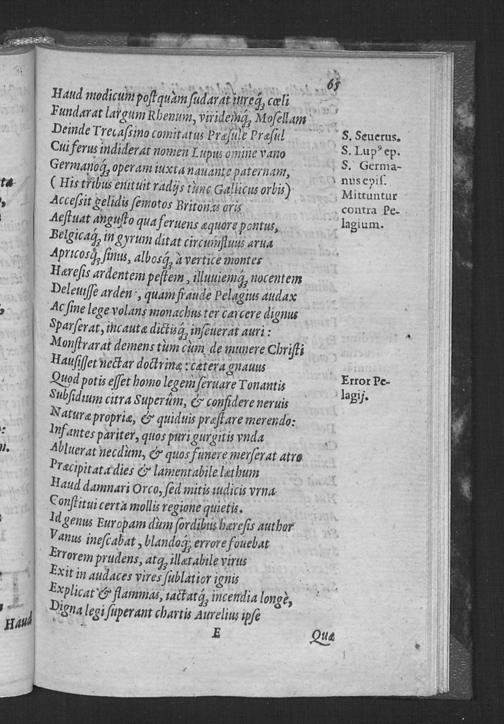 65
Haud modicum postquàm sudarat iureq́; cœli
Fundarat largum Rhenum, viridemq́; Mosellam
Deinde Trecassino comitatus Præsule Præsul
Cui ferus indiderat nomen Lupus omine vano
Germanoq́; operam iuxta nauante paternam,
( His tribus enituit radijs tùnc Gallicus orbis)
Accessit gelidis semotos Britonas oris
Aestuat angusto qua feruens æquore pontus,
Belgicaq́; in gyrum ditat circumfluus arua
Apricosq́; sinus, albosq́; à vertice montes
Hæresis ardentem pestem, illuuiemq́; nocentem
Deleuisse arden, quam fraude Pelagius audax
Ac sine lege volans monachus ter carcere dignus
Sparserat, incautæ dictisq́; inseuerat auri:
Monstrarat demens tùm cùm de munere Christi
Hausisset nectar doctrinæ: cætera gnauus
Quod potis esset homo legem seruare Tonantis
Subsidium citra Superûm, & confidere neruis
Naturæ propriæ, & quiduis præstare merendo:
Infantes pariter, quos puri gurgitis vnda
Abluerat necdùm, & quos funere merserat atro
Præcipitata dies & lamentabile læthum
Haud damnari Orco, sed mitis iudicis vrna
Constitui certa mollis regione quietis.
Id genus Europam dùm sordibus hæresis author
Vanus inescabat, blandoq́; errore fouebat
Errorem prudens, atq́; illætabile virus
Exit in audaces vires sublatior ignis
Explicat & flammas, iactatq́; incendia longè,
Digna legi superant chartis Aurelius ipse
E Quæ
S. Seuerus.
S. Lupꝰ ep.
S. Germa-
nus epis.
Mittuntur
contra Pe-
lagium.
Error Pe-
lagij.
Haud